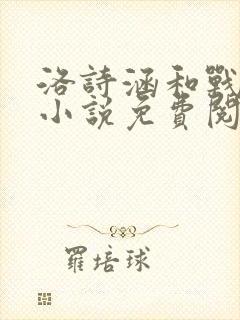 洛詩涵和戰
小說免費閱
羅培球